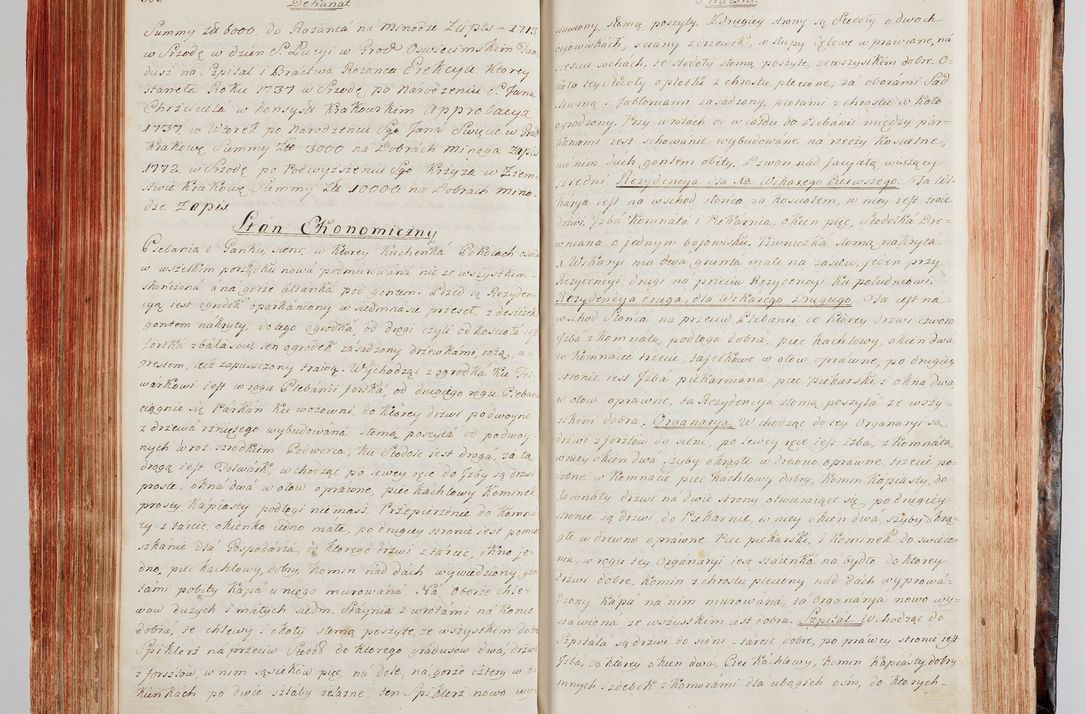 Dekanat
Summy Zł 6000. do Rożańca na Minodze Zapis - 1713
w Szrodę w dzień S. Łucyi w Grod. Oswiecimskim Fun-
dusz na Szpital i Bractwa Rożańca Erekcya, ktorey
stanęła Roku 1737 w Srzodę po Narodzeniu S. Jana
Chrzciciela w konsysto Krakowskim Approbacya
1737 w Wtorek po Narodzeniu Sgo Jana Swięte w Grod
Krakows Summy Złł 3000 na Dobrach Minoga Zapis
1772. w Srzodę po Podwyższeniu Sgo Krzyża w Ziem-
stwie Krakows Summy Zł. 10000 na Dobrach Mino-
dze Zapis
Stan Ekonomiczny
Plebania o Ganku, sieni, w ktorey kuchenka Pokoiach
w wszelkim porządku nowa podmurowana nie ze wszystkim
skończona ana gorze altanka pod gontem. Przed tą Rezyden-
cyą iest ogrodek oparkaniony w siedmnaście przęseł, z deszczek
gontem nakryty, do tego ogrodka, od drogi czyli od kościoła iest
fortka z balasow ten ogrodek zasadzony drzewkami, rożą, a-
grestem, teź zapuszczony trawą. Wychodząc z ogrodka ku Fol-
warkowi iest w rogu Plebanii fortka, od drugiego rogu Plebanii
ciągnie się Parkan ku wozowni, do ktorey drzwi podwoyne
z drzewa rżniętego wybudowana słomą poszyta od podwoy-
nych wrot szrodkiem Podworca, ku Stodole iest droga, za tą
drogą iest Folwark, wchodząc po lewey ręce do Izby są drzwi
proste, okna dwa w ołow oprawne, piec kachlowy kominek
prosty kapiasty podłogi niemasz. Przepierzenie do komo-
ry z tarcic, okienko iedno małe, po drugiey stronie iest pomie-
szkanie dla Gospodarza, do ktorego drzwi z tarcic, okno ie-
dno, piec kachlowy, dobry, komin nad dach wywiedziony gon-
tami pobity kapa u niego murowana. Na Oborze chle-
wow dużych i małych siedm, Staynia z wrotami na konie
dobra, te chlewy i okoły słomą poszyte, ze wszystkim dobre
Spiklerz na przeciw Stodoł do ktorego gradusow dwa, drzwi
z forsztow, w nim sąsiekow pięć, na dole, na gorze cztery w o-
kienkach po dwie sztaby żelazne, ten Spiklerz nowo wy-
stawiony, słomą poszyty. Z drugiey strony są Stodoły o dwoch
boiowiskach, sciany z drzewek, w słupy Dębowe w prawiane, na
siesciu sochach, te Stodoły słomą poszyte, ze wszystkim dobre. O-
koło tey Stodoły opłotki z chrostu plecione, za oborami Sad
śliwną i Jabłoniami zasadzony, płotami z chrostu w koło
ogrodzony. Przy wrotach co w iazdu do Plebanii między par-
kanami iest schowanie wybudowane na rzeczy kościelne,
na nim dach, gontem obity, Dzwon nad facyatą wiszący
średni. Rezydencya dla Xa Wikarego Pierwszego. Ta Wi-
karya iest na wschod słońca za kościołem, w niey iest troie
drzwi, Izba komnata i Piekarnia, okien pięć, Stodołka Dre-
wniana o jednym boiowisku, Piwniczka słomą nakryta
X. Wikaryi ma dwa grunta małe na zasiew, jeden przy
Rezydencyi, drugi na przeciw Rezydencyi ku południowi.
Rezydencya druga, dla Wikarego Drugiego. Ta iest na
wschod słońca na przeciw Plebanii do ktorey drzwi czworo
Izba z komnatą, podłoga dobra, piec kachlowy, okien dwa,
w komnacie trzecie, tafelkowe w ołow oprawne, po drugiey
stronie iest Izba piekarniana, piec Piekarski i okna dwa
w ołow oprawne, ta Rezydencya słomą poszyta ze wszy-
stkim dobra, Organarya. Wchodząc do tey Organaryi są
drzwi z forsztow do sieni, po lewey ręce iest Izba, z komnatą
w niey okien dwa, szyby okrągłe w drewno oprawne, trzecie po-
dobne w komnacie piec kachlowy dobry, komin kapiasty, do
komnaty drzwi na dwie strony otwieraiące się, po drugiey
stronie są drzwi do Piekarnie, w niey okien dwa, szyby okrą-
głe w drewno oprawne Piec piekarski, i kominek do swiece-
nia, w rogu tey Organaryi iest stajenka na bydło do ktorey
drzwi dobre, komin z chrostu pleciony nad dach wyprowa-
dzony kapa na nim murowana, ta Organarya nowo wy-
stawiona ze wszystkim iest dobra. Szpital Wchodząc do
Szpitala są drzwi do sieni z tarcic dobre, po prawey stronie iest
Izba, do ktorey okien dwa, Piec kachlowy, komin kapiasty dobry
innych izdebek z komorami dla ubogich ośm, do ktorych -